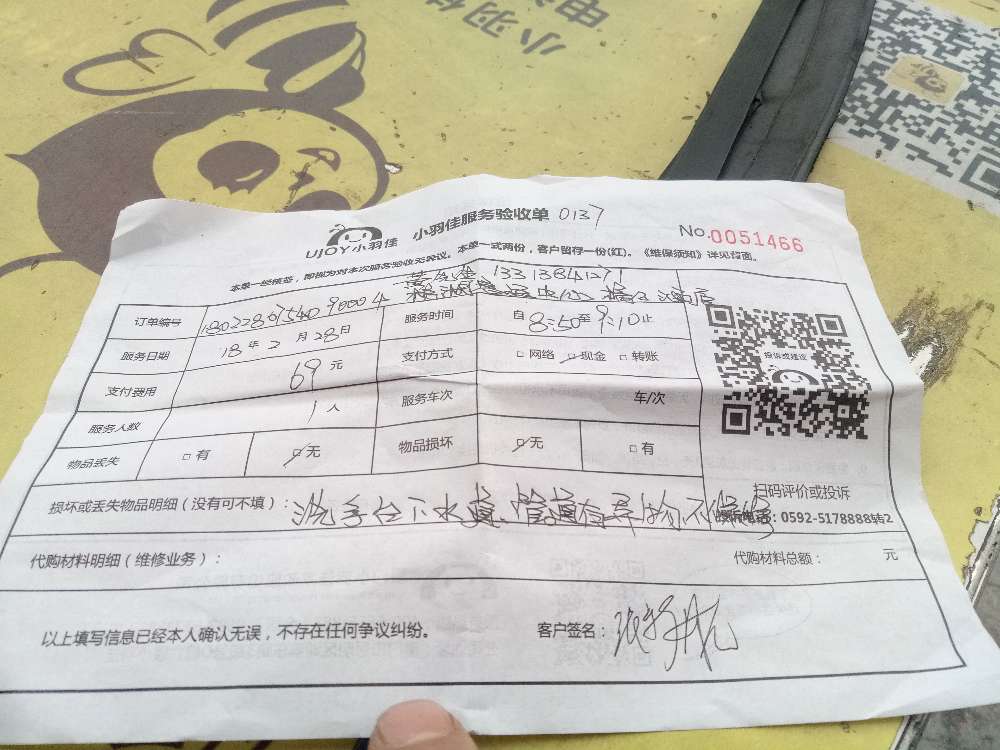 小羽佳
UJOY小羽佳 小羽佳服务验收单 0137
No.0051466
本单一经签签，即视为对本次服务验收无异议。本单一式两份，客户留存一份(红)。《维保须知》详见背面。
13313841271
订单编号 服务时间 自8:50至9:10止
服务日期 18年2月28日 支付方式 □网络 □现金 □转账
支付费用 69元 服务车次 车/次
服务人数 1人
物品丢失 □有 □无 物品损坏 □无 □有
投诉或建议
扫码评价或投诉
损坏或丢失物品明细（没有可不填）：洗手台下水道、管道有异物不保修
电话：0592-5178888转2
代购材料明细（维修业务）： 代购材料总额： 元
以上填写信息已经本人确认无误，不存在任何争议纠纷。 客户签名：